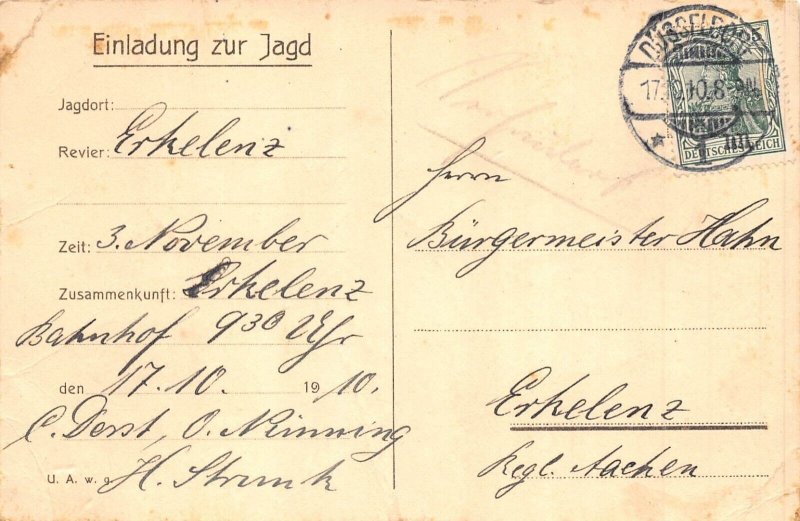 Einladung zur Jagd
Jagdort:
Revier: Erkelenz
Zeit: 3. November
Zusammenkunft: Erkelenz
Bahnhof 9 30 Uhr
den 17.10. 1910.
C. Derst, O.
H. Strunk
U. A. w. g.
DÜSSELDORF
17. 10. 10. 8-
* 1 m.
DEUTSCHES REICH
Herrn
Bürgermeister Hahn
Erkelenz
Regb. Aachen